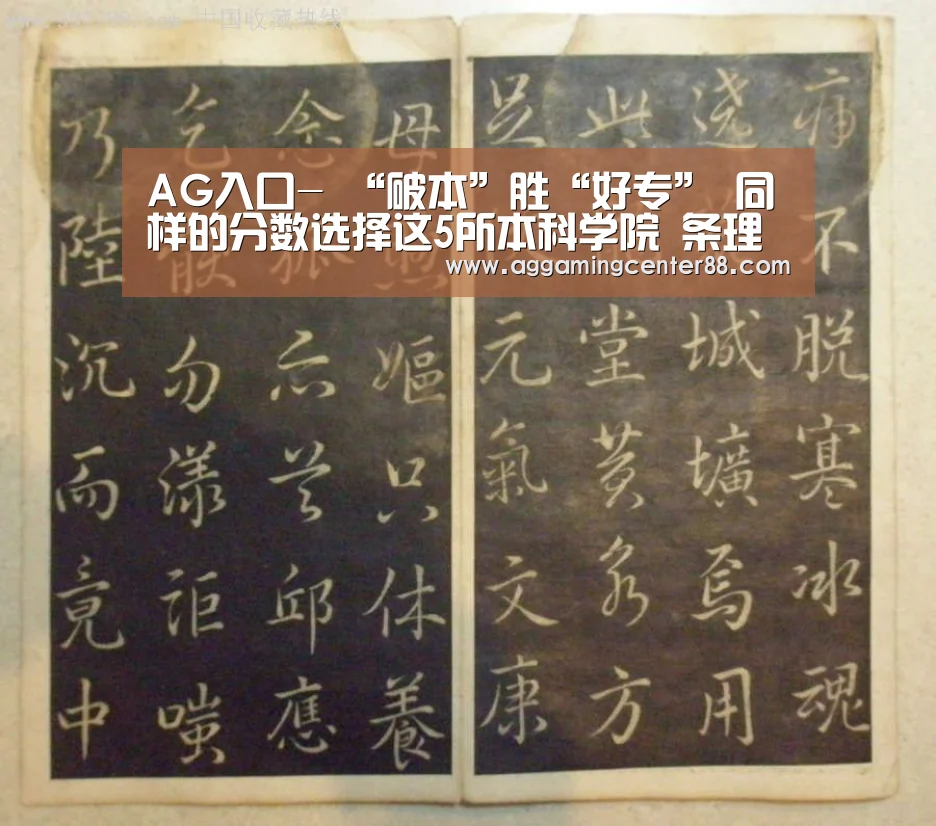 中国收藏热线
AG入口- “破本”胜“好专” 同
样的分数选择这5所本科学院 条理
www.aggamingcenter88.com
不脱寒冰魂
浇城壙焉用
此堂黄泉方
足元氣文康
母嫗只休養
念孤亦邱應
乞骸勿漾詎嗤
乃陸沉而竟中